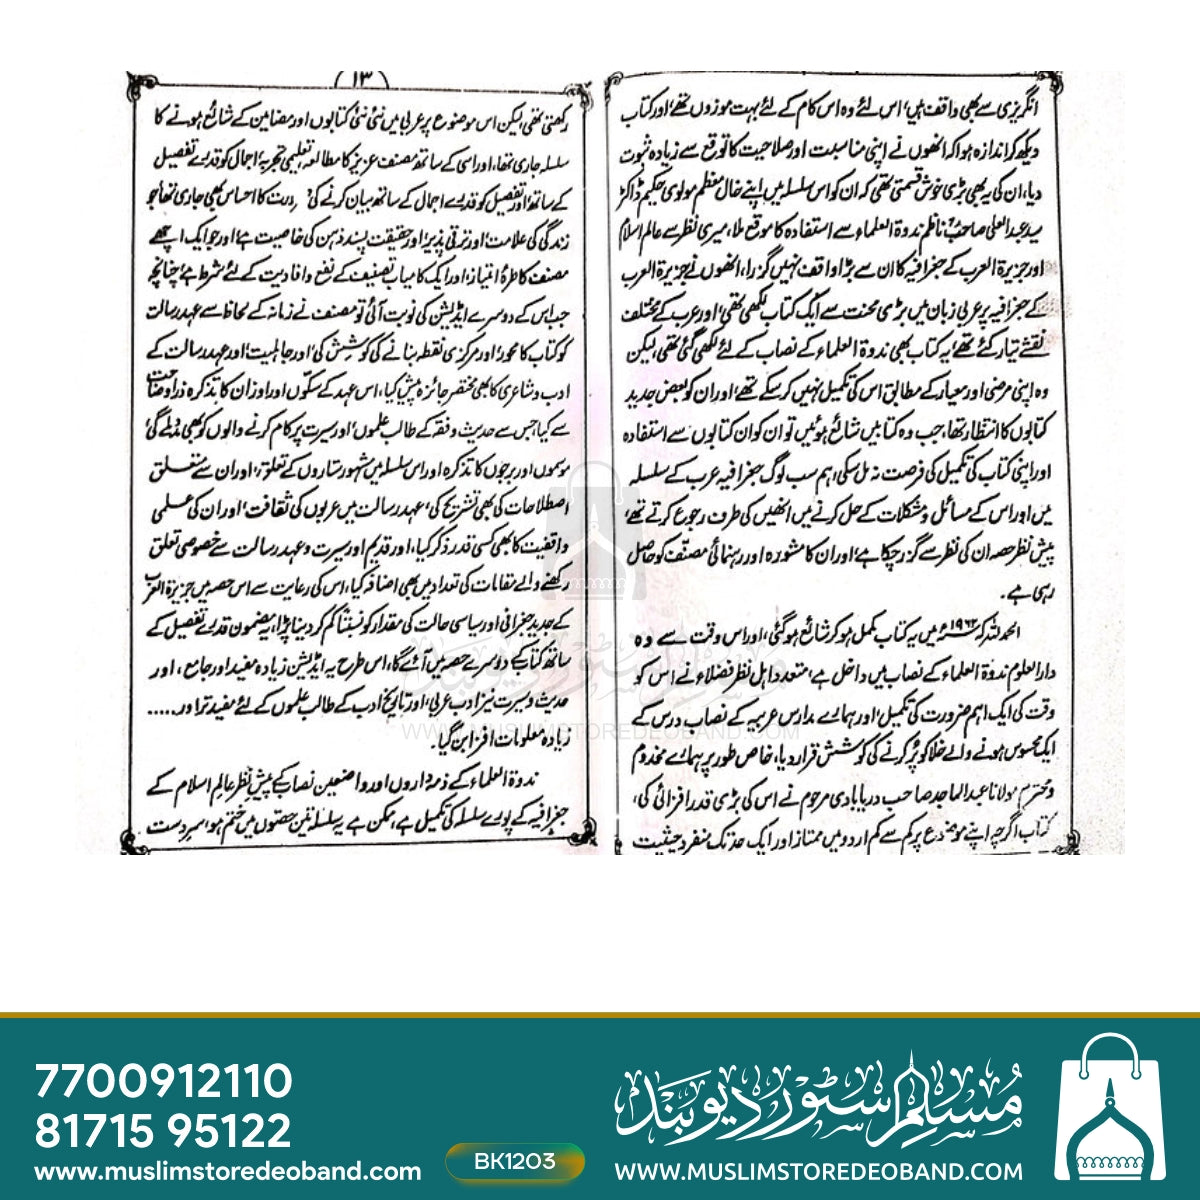 انگریزی سے بھی واقف ہیں، اس لئے وہ اس کام کے لئے بہت موزوں تھے، اور کتاب
دیکھ کر اندازہ ہوا کہ انھوں نے اپنی مناسبت اور صلاحیت کا توقع سے زیادہ ثبوت
دیا، ان کی یہ بھی بڑی خوش قسمتی تھی کہ ان کو اس سلسلہ میں اپنے خال معظم مولوی حکیم ڈاکٹر
سید عبد العلی صاحبؒ ناظم ندوۃ العلماء سے استفادہ کا موقع ملا، میری نظر سے عالم اسلام
اور جزیرۃ العرب کے جغرافیہ کا ان سے بڑا واقف نہیں گزرا، انھوں نے جزیرۃ العرب
کے جغرافیہ پر عربی زبان میں بڑی محنت سے ایک کتاب لکھی تھی، اور عرب کے مختلف
نقشے تیار کئے تھے، یہ کتاب بھی ندوۃ العلماء کے نصاب کے لئے لکھی گئی تھی، لیکن
وہ اپنی مرضی اور معیار کے مطابق اس کی تکمیل نہیں کر سکے تھے، اور ان کو بعض جدید
کتابوں کا انتظار تھا، جب وہ کتابیں شائع ہوئیں تو ان کو ان کتابوں سے استفادہ
اور اپنی کتاب کی تکمیل کی فرصت نہ مل سکی، ہم سب لوگ جغرافیہ عرب کے سلسلہ
میں اور اس کے مسائل و مشکلات کے حل کرنے میں انھیں کی طرف رجوع کرتے تھے،
پیش نظر حصہ ان کی نظر سے گزر چکا ہے، اور ان کا مشورہ اور رہنمائی مصنف کو حاصل
رہی ہے۔
الحمد للہ کہ ۱۹۶۲ء میں یہ کتاب مکمل ہو کر شائع ہو گئی، اور اس وقت سے وہ
دارالعلوم ندوۃ العلماء کے نصاب میں داخل ہے، متعدد اہل نظر فضلاء نے اس کو
وقت کی ایک اہم ضرورت کی تکمیل، اور ہمارے مدارس عربیہ کے نصاب درس کے
ایک محسوس ہونے والے خلا کو پُر کرنے کی کوشش قرار دیا، خاص طور پر ہمارے مخدوم
و محترم مولانا عبد الماجد صاحب دریابادی مرحوم نے اس کی بڑی قدر افزائی کی،
کتاب اگرچہ اپنے موضوع پر کم سے کم اردو میں ممتاز اور ایک حد تک منفرد حیثیت
۱۳
رکھتی تھی، لیکن اس موضوع پر عربی میں نئی نئی کتابوں اور مضامین کے شائع ہونے کا
سلسلہ جاری تھا، اور اسی کے ساتھ مصنف عزیز کا مطالعہ، تعلیمی تجربہ، اجمال کو قدرے تفصیل
کے ساتھ، اور تفصیل کو قدرے اجمال کے ساتھ بیان کرنے کی ضرورت کا احساس بھی جاری تھا، جو
زندگی کی علامت، اور ترقی پذیر، اور حقیقت پسند ذہن کی خاصیت ہے، اور جو ایک اچھے
مصنف کا طرۂ امتیاز، اور ایک کامیاب تصنیف کے نفع و افادیت کے لئے شرط ہے، چنانچہ
جب اس کے دوسرے ایڈیشن کی نوبت آئی تو مصنف نے زمانہ کے لحاظ سے عہد رسالت
کو کتاب کا محور، اور مرکزی نقطہ بنانے کی کوشش کی، اور جاہلیت، اور عہد رسالت کے
ادب و شاعری کا بھی مختصر جائزہ پیش کیا، اس عہد کے سکّوں اور اوزان کا تذکرہ ذرا وضاحت
سے کیا، جس سے حدیث و فقہ کے طالب علموں، اور سیرت پر کام کرنے والوں کو بھی مدد ملے گی،
موسموں اور برجوں کا تذکرہ اور اس سلسلہ میں شہور ستاروں کے تعلق، اور ان سے متعلق
اصطلاحات کی بھی تشریح کی، عہد رسالت میں عربوں کی ثقافت، اور ان کی علمی
واقفیت کا بھی کسی قدر ذکر کیا، اور قدیم اور سیرت و عہد رسالت سے خصوصی تعلق
رکھنے والے مقامات کی تعداد میں بھی اضافہ کیا، اس کی رعایت سے اس حصہ میں جزیرۃ العرب
کے جدید جغرافی اور سیاسی حالت کی مقدار کو نسبتاً کم کر دینا پڑا، یہ مضمون قدرے تفصیل کے
ساتھ کتاب کے دوسرے حصہ میں آئے گا، اس طرح یہ ایڈیشن زیادہ مفید اور جامع، اور
حدیث و سیرت نیز ادب عربی، اور تاریخ ادب کے طالب علموں کے لئے مفید تر اور.....
زیادہ معلومات افزا بن گیا۔
ندوۃ العلماء کے ذمہ داروں اور واضعین نصاب کے پیش نظر عالم اسلام کے
جغرافیہ کے پورے سلسلہ کی تکمیل ہے، ممکن ہے یہ سلسلہ تین حصوں میں ختم ہو، سردست
مسلم سٹور دیوبند
WWW.MUSLIMSTOREDEOBAND.COM
7700912110
81715 95122
www.muslimstoredeoband.com
BK1203
مسلم سٹور دیوبند
WWW.MUSLIMSTOREDEOBAND.COM